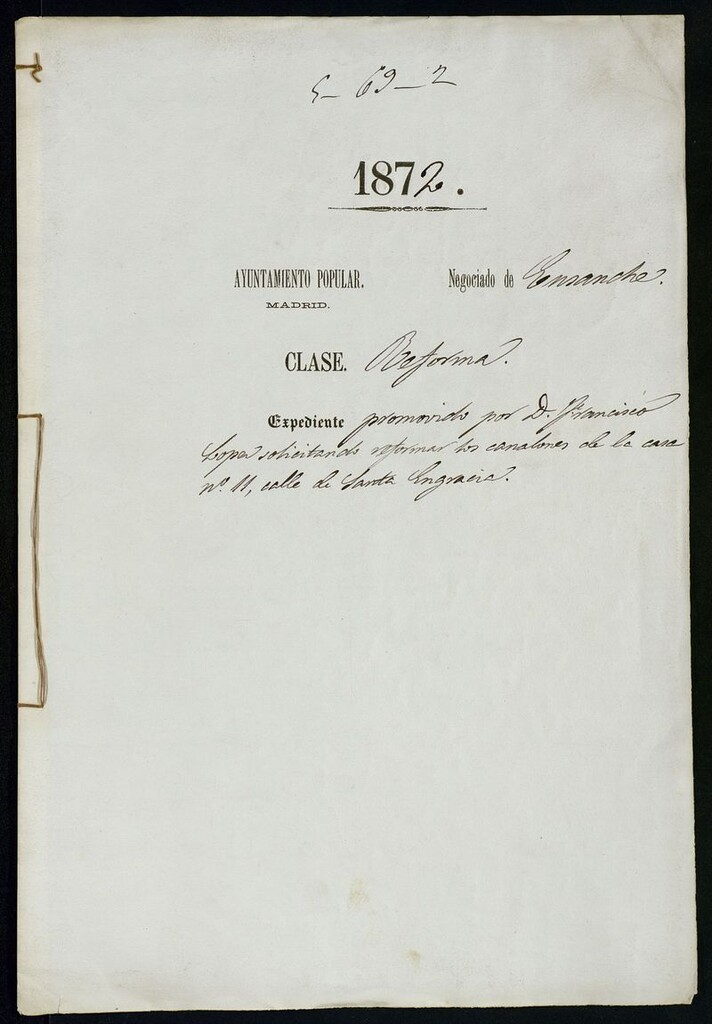 5-69-2
1872.
AYUNTAMIENTO POPULAR. Negociado de Ensanche.
MADRID.
CLASE. Reforma.
Expediente promovido por D. Francisco
Lopez solicitando reformar los canalones de la casa
nº. 11, calle de Santa Engracia.